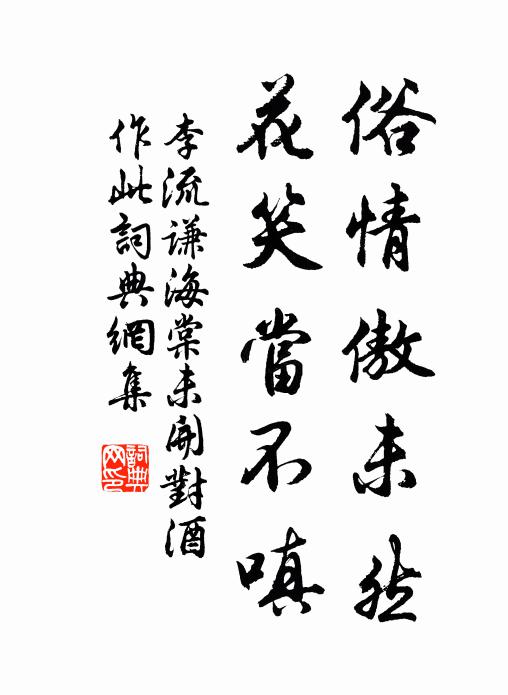 俗情傲未然
花笑當不嗔
李流謙海棠未開對酒
作此詞典網集
詞典网印